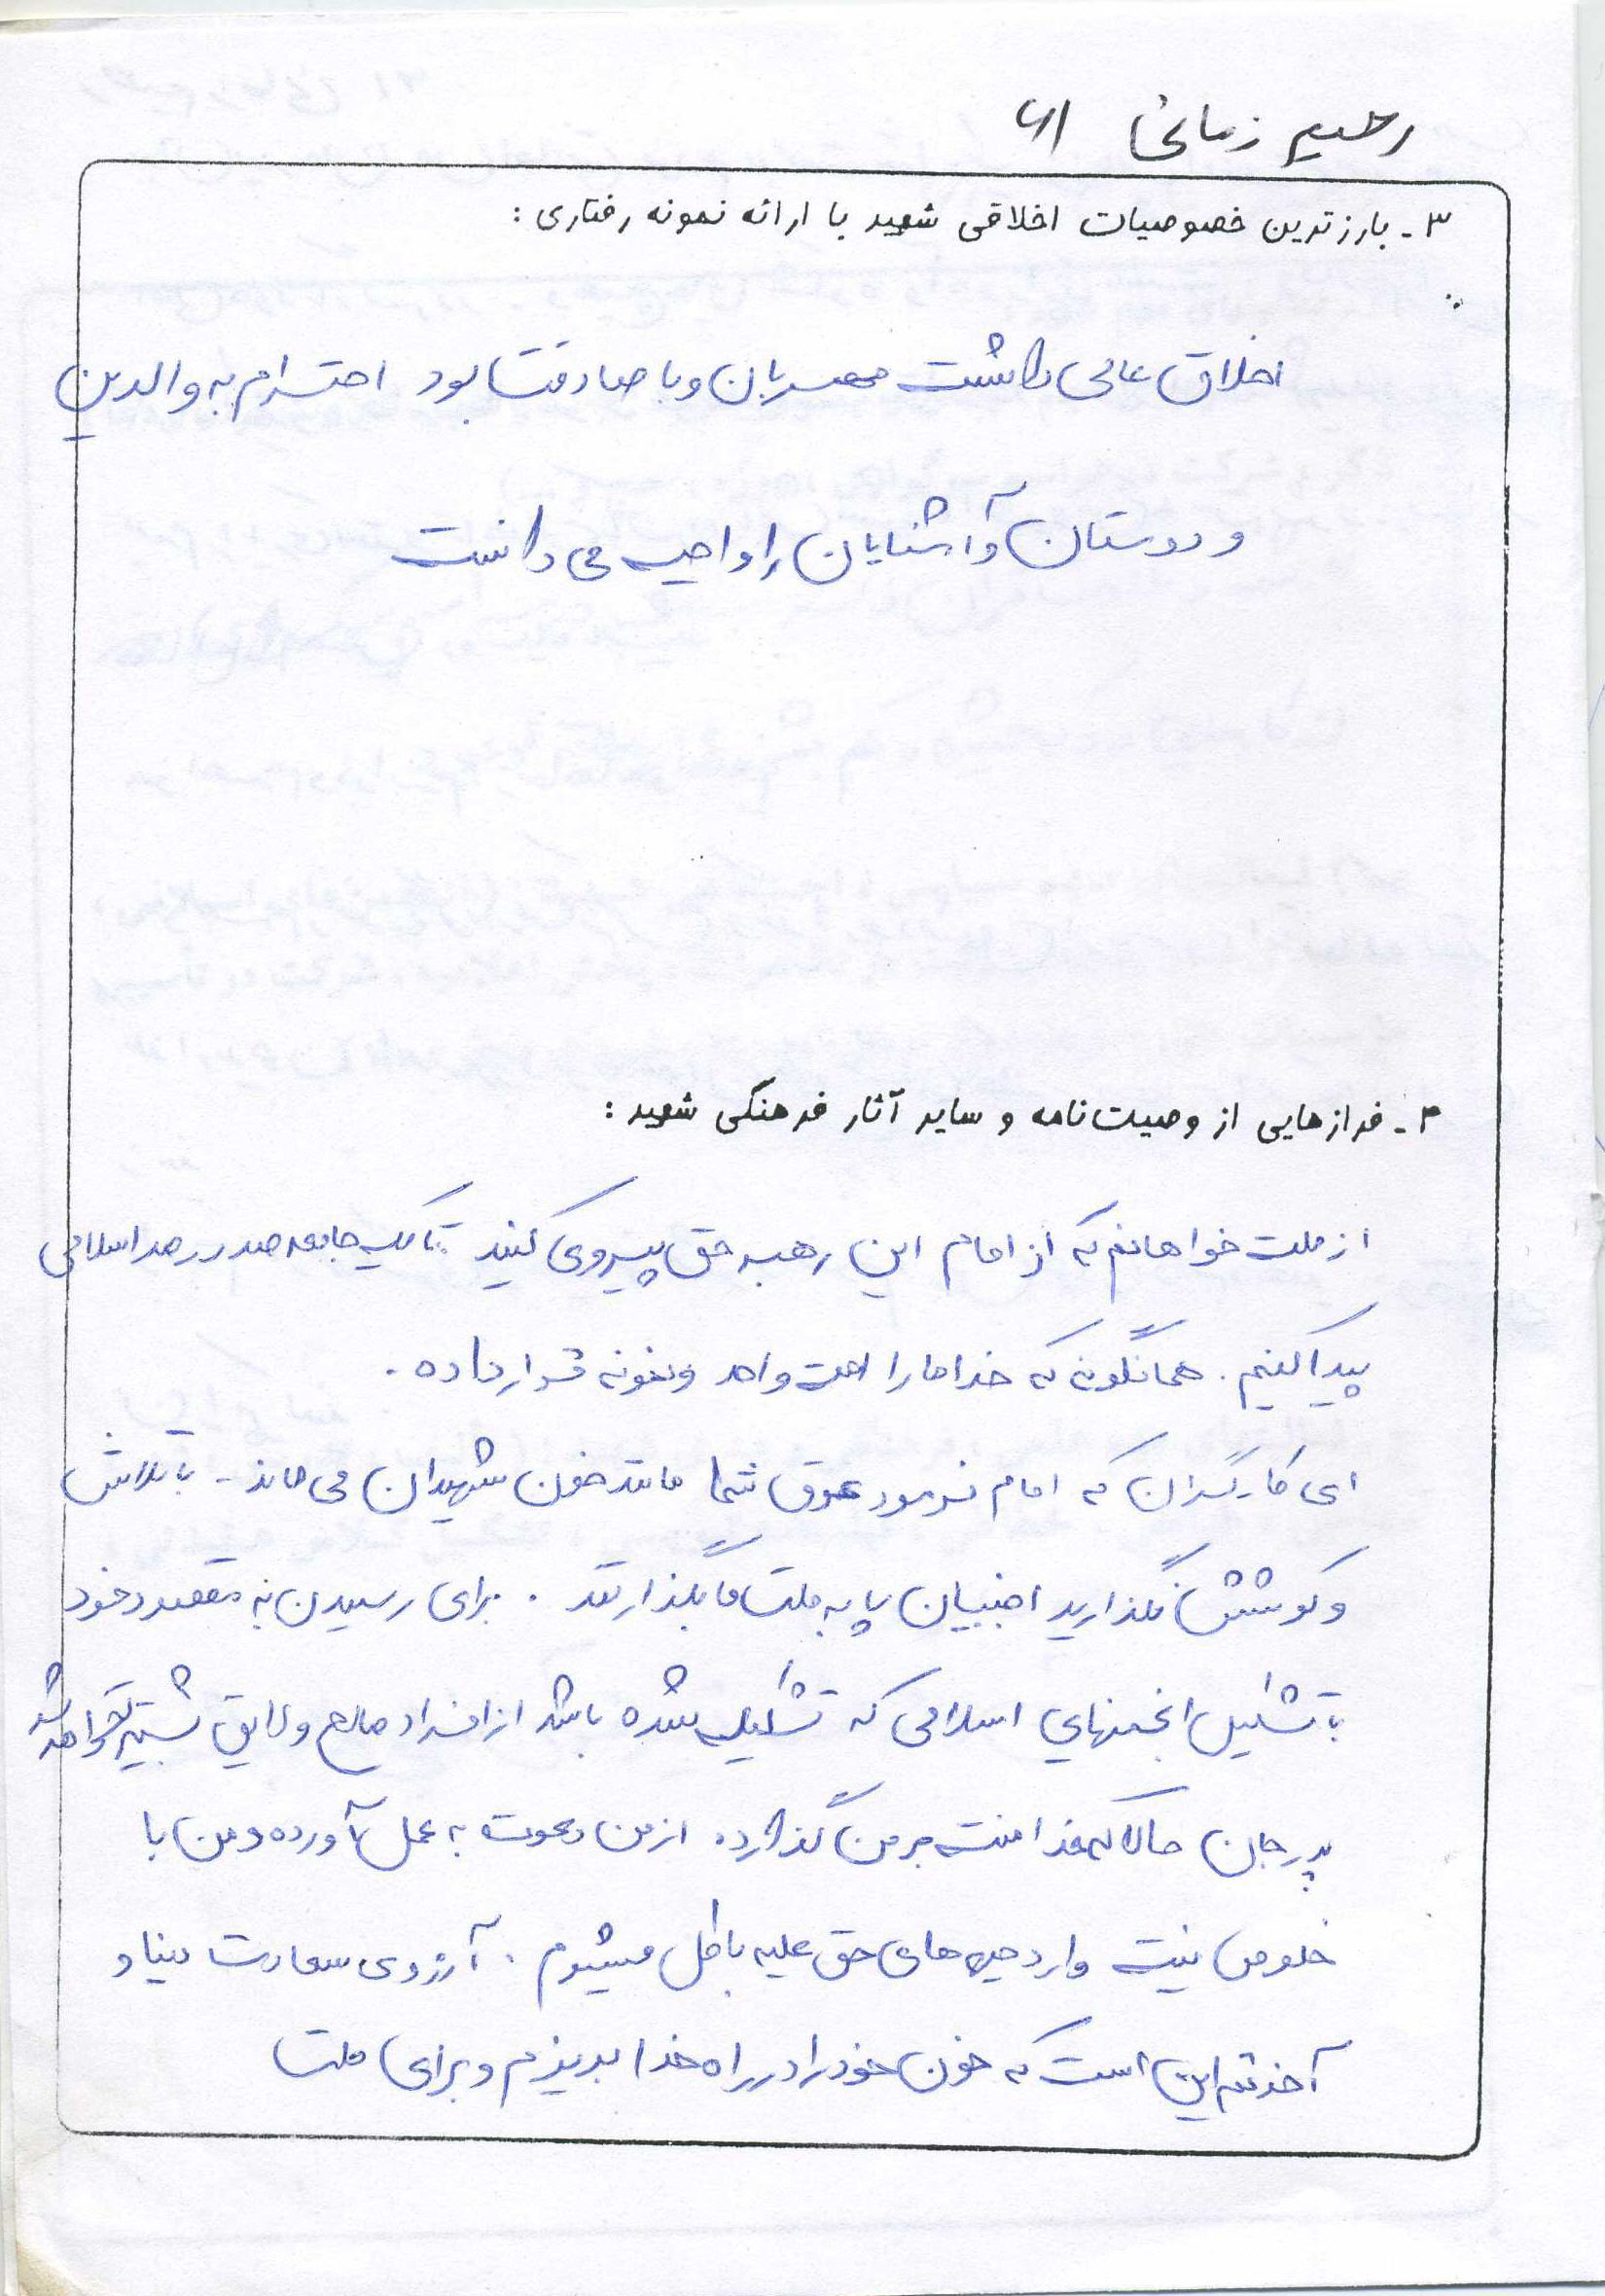 رحیم زمانی ۶۱
۳- بارزترین خصوصیات اخلاقی شهید با ارائه نمونه رفتاری :
اخلاق عالی داشت مهربان و با صداقت بود احترام به والدین
و دوستان و آشنایان را واجب می دانست
۴- فرازهایی از وصیت‌نامه و سایر آثار فرهنگی شهید :
از ملت خواهانم که از امام این رهبر حق پیروی کنید تا یک جامعه صد در صد اسلامی
پیدا کنیم . همانگونه که خدا ما را امت واحد و نمونه قرار داده .
ای کارگران که امام فرمود عرق شما مانند خون شهیدان می ماند - با تلاش
و کوشش نگذارید اجنبیان پا به ملت ما بگذارند . برای رسیدن به مقصود خود
با تشکیل انجمنهای اسلامی که تشکیل شده باشد از افراد صالح و لایق
پدر جان حالا که خدا منت بر من گذارده از من دعوت به عمل آورده و من با
خلوص نیت وارد جبهه های حق علیه باطل میشوم . آرزوی سعادت دنیا و
آخرتم این است که خون خود را در راه خدا بریزم و برای ملت